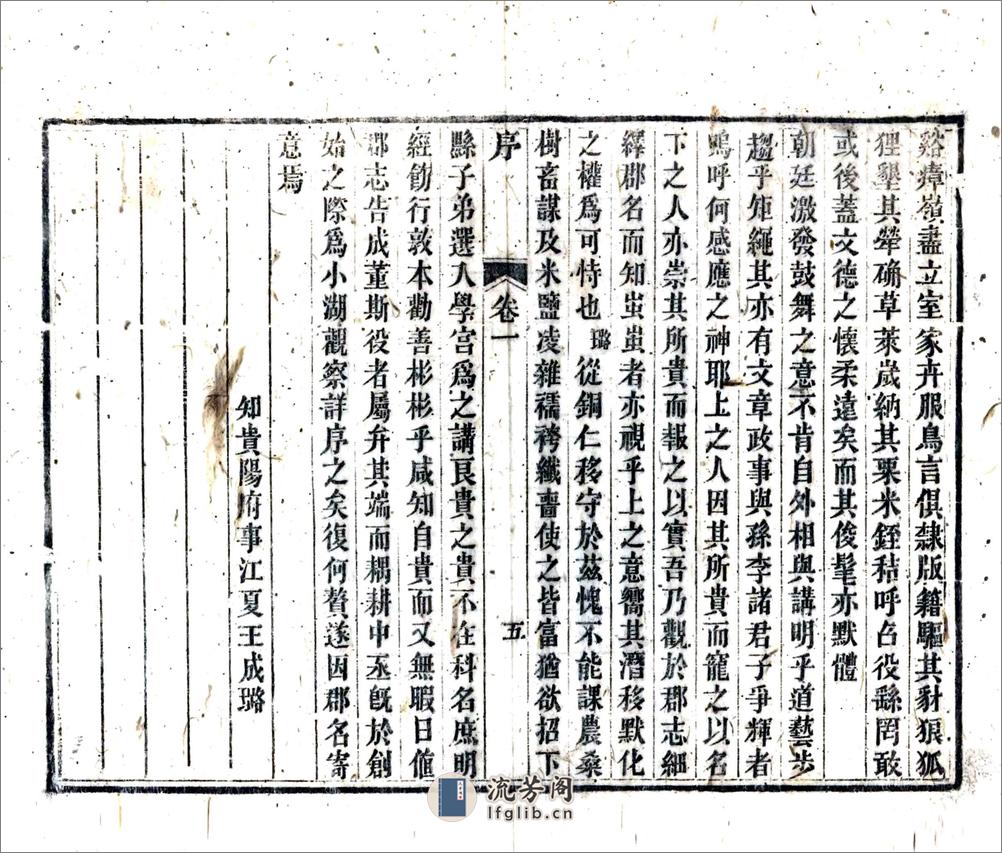 谿瘴嶺盡立室家卉服鳥言俱隸版籍驅其豺狼狐
狸墾其犖确草萊歲納其栗米銍秸呼召役繇罔敢
或後蓋文德之懷柔遠矣而其俊髦亦默體
朝廷激發鼓舞之意不肯自外相與講明乎道藝步
趨乎矩繩其亦有文章政事與孫李諸君子爭輝者
嗚呼何感應之神耶上之人因其所貴而寵之以名
下之人亦崇其所貴而報之以實吾乃觀於郡志細
繹郡名而知蚩蚩者亦視乎上之意嚮其潛移默化
之權爲可恃也璐從銅仁移守於茲愧不能課農桑
樹畜謀及米鹽凌雜襦袴纖嗇使之皆富猶欲招下
序 卷一 五
縣子弟選入學宮爲之講艮貴之貴不在科名庶明
經飭行敦本勸善彬彬乎咸知自貴而又無暇日值
郡志告成董斯役者屬弁其端而耦耕中丞旣於創
始之際爲小湖觀察詳序之矣復何贅遂因郡名寄
意焉
知貴陽府事江夏王成璐
流芳阁
lfglib.cn